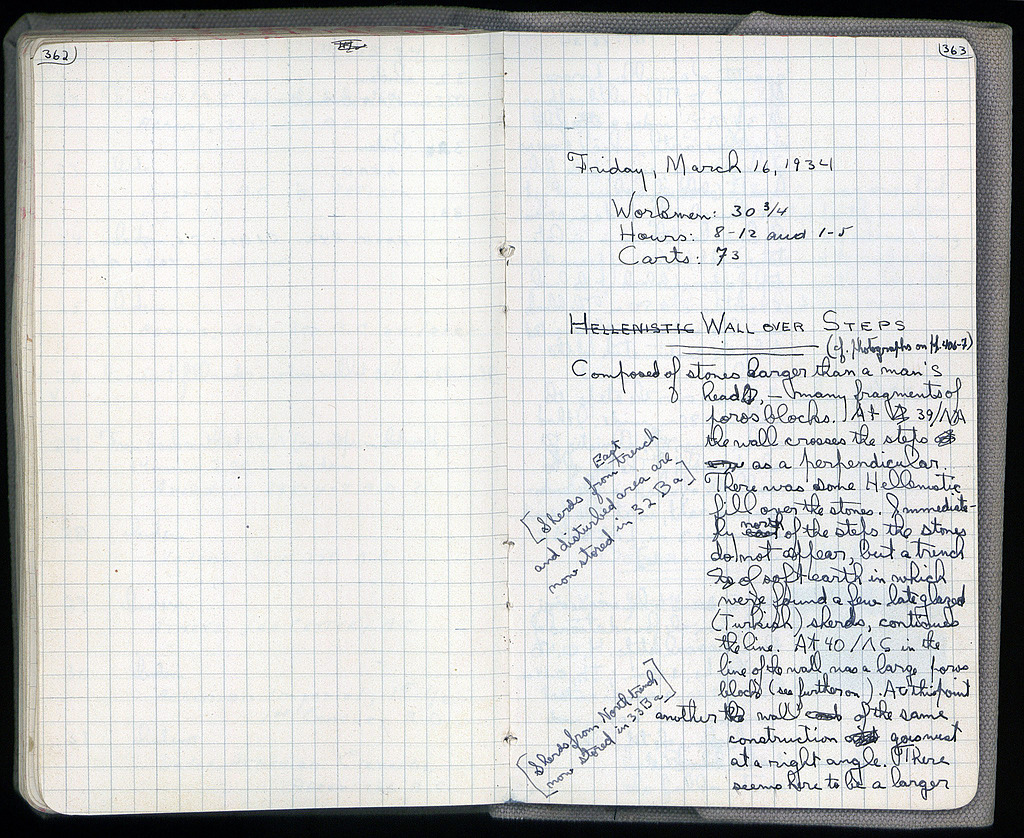 362
363
Friday, March 16, 1934
Workmen: 30 3/4
Hours: 8-12 and 1-5
Carts: 73
HELLENISTIC WALL OVER STEPS
(cf. Photographs on pp. 406-7)
Composed of stones larger than a man's
head, – many fragments of
poros blocks. At 39/ΛΔ
the wall crosses the steps
as a perpendicular.
There was some Hellenistic
fill over the stones. Immediate-
ly north of the steps the stones
do not appear, but a trench
of soft earth in which
were found a few late glazed
(Turkish) sherds, continues
the line. At 40/ΛS in the
line of the wall was a large poros
block (see further on). At this point
another wall of the same
construction goes west
at a right angle. There
seems here to be a larger
[Sherds from East trench
and disturbed area are
now stored in 32 Ba]
[Sherds from North trench
now stored in 33 Ba]